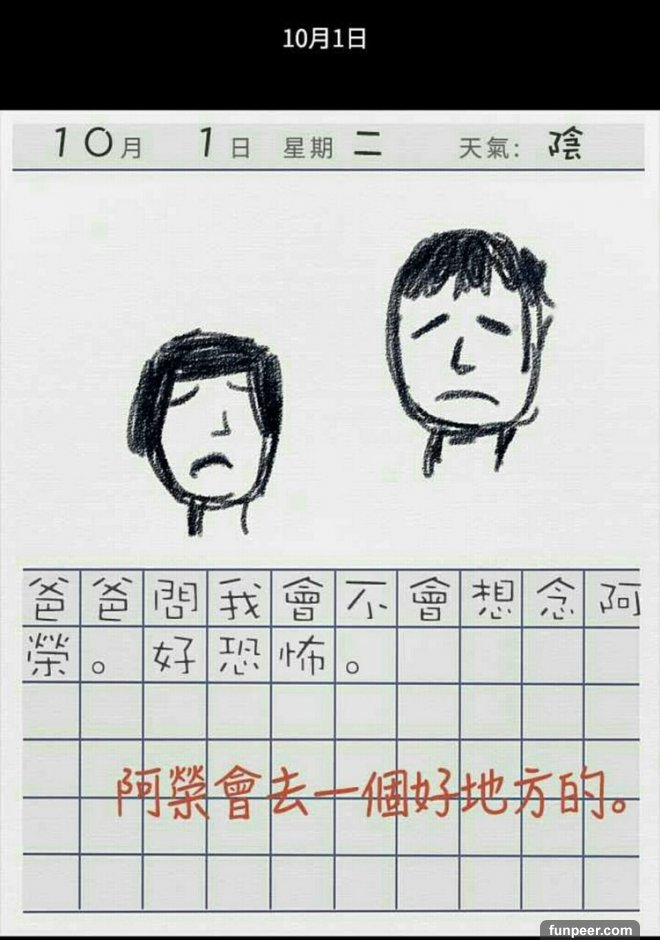 10月1日
10月 1日 星期二 天氣: 陰
爸爸問我會不會想念阿
榮。好恐怖。
阿榮會去一個好地方的。
funpeer.com